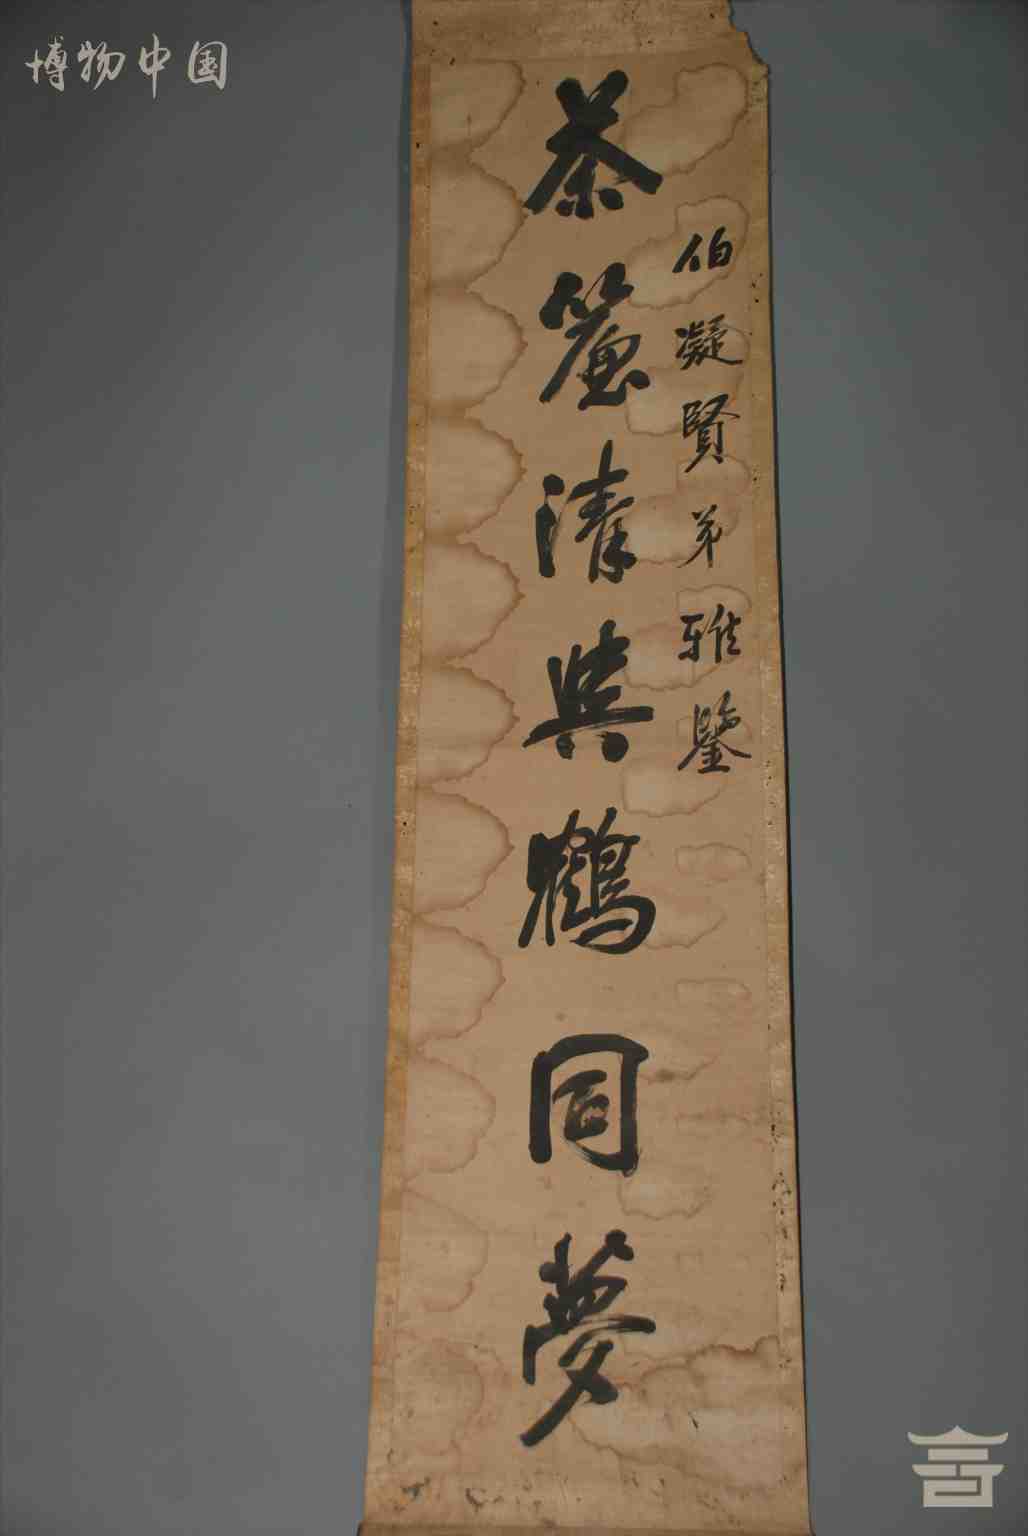 博物中国
伯凝賢弟雅鑒
茶簾清與鶴同夢